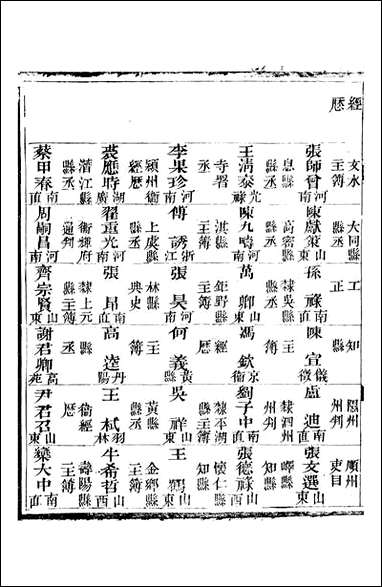 經歷
文水主簿　大同縣縣丞　工正　知縣　隰州州判　順州吏目
張師曾河南　陳獻策山東　孫祿南直　陳宣儀徵　盧迪南直　張文選山東
息縣縣丞　高密縣縣丞　隸吳縣縣丞　主簿　隸泗州州判　嶧縣知縣
王清泰光祿　陳九疇河南　萬卿山東　馮欽京衛　劉子中南直　張德祿山西
寺署丞　淇縣主簿　鉅野縣主簿　經歷　隸太平縣知縣　懷仁縣知縣
李果珍河南　傅誘浙江　張昊河南　何義黃縣　吳祥山東　王鶴山東
潁州衛經歷　上虞縣縣丞　林縣典史　主簿　黃縣主簿　金鄉縣主簿
裘應時湖廣　翟重光河南　張昂南直　高逵丹陽　王栻羽林　牛希哲山西
潛江縣縣丞　衞輝府通判　隸上元縣主簿　縣丞　衞經歷　壽陽縣主簿
蔡甲春南直　周嗣昌河南　齊宗賢山東　謝君卿高苑　尹君召山東　欒大中南直